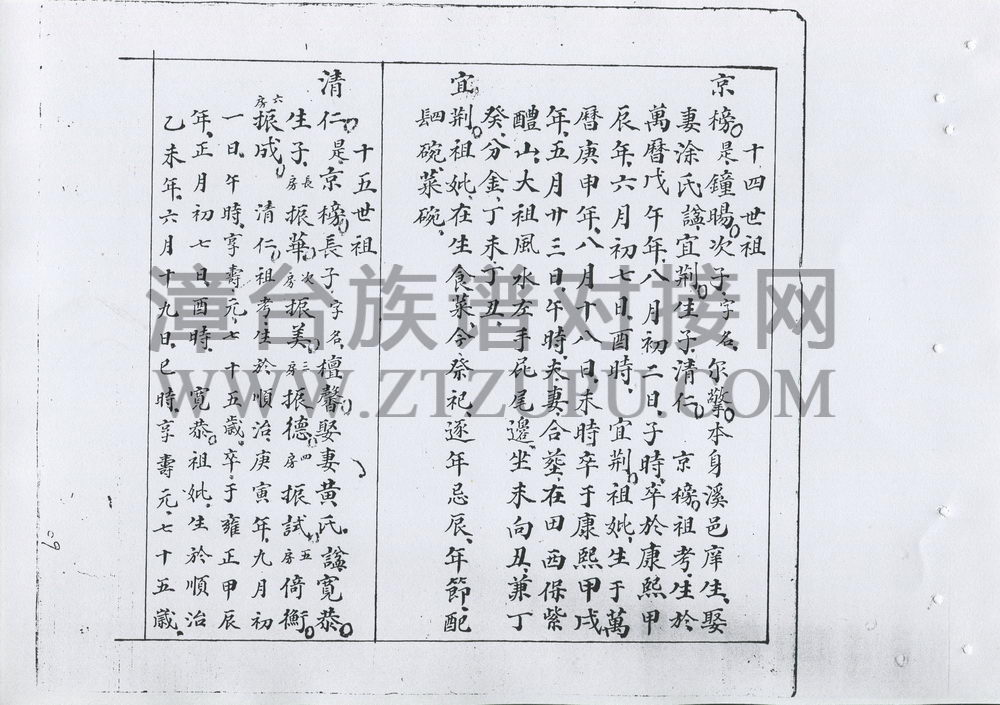 十四世祖
京榜是鐘暘次子字名尔擎本身溪邑庠生娶
妻涂氏諡宜荆生子清仁 京榜祖考生於
萬曆戊午年八月初二日子時卒於康熙甲
辰年六月初七日酉時 宜荆祖妣生于萬
曆庚申年八月十八日未時卒于康熙甲戌
年五月廿三日午時夫妻合塟在田西保紫
醴山大祖風水左手屘尾邊坐未向丑兼丁
癸分金丁未丁丑
宜荆祖妣在生食菜今祭祀逐年忌辰年節配
四碗菜碗
十五世祖
清仁是京榜長子字名檀馨娶妻黄氏諡寬恭
生子長房振華次房振美三房振德四房振試五房倚衡
六房振成 清仁祖考生於順治庚寅年九月初
一日午時享壽元七十五歲卒于雍正甲辰
年正月初七日酉時 寬恭祖妣生於順治
乙未年六月十九日巳時享壽元七十五歲
漳台族谱对接网
WWW.ZTZUPU.COM